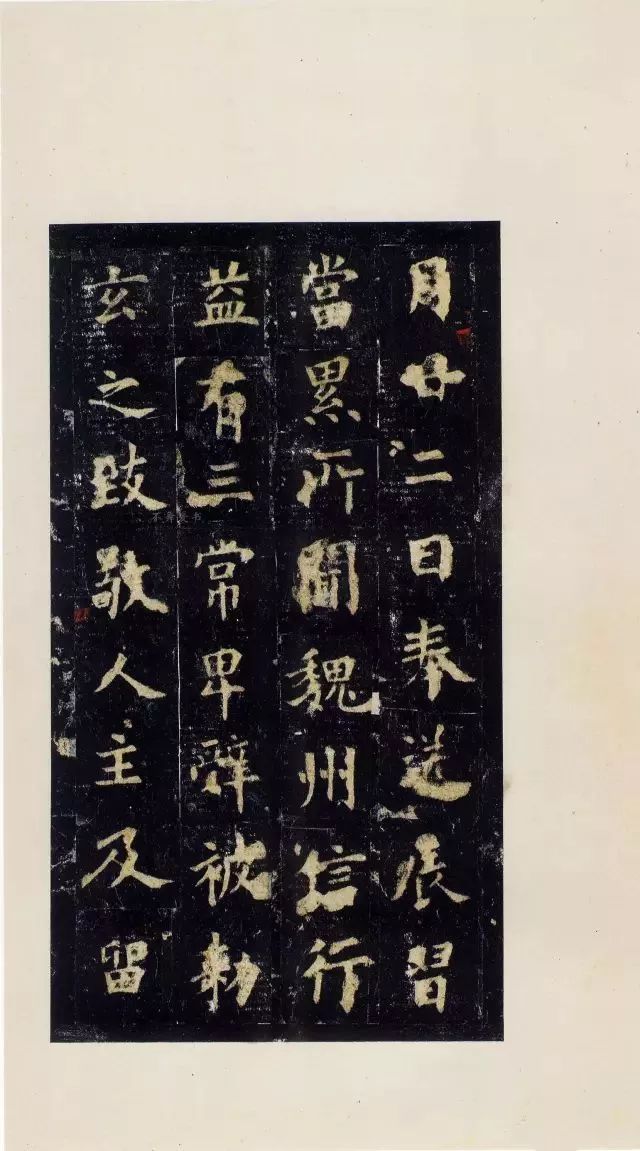 月廿二日奉送辰習
當累所聞魏州信行
益有三常卑辭被勅
玄之致敬人主及留